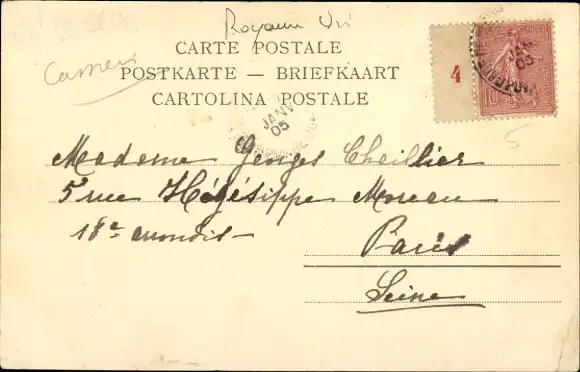 Royaum Uni
CARTE POSTALE
POSTKARTE — BRIEFKAART
CARTOLINA POSTALE
4
10
JANV
05
JANV
05
5
Madame Georges Cheillier
5 rue Hégésippe Moreau
18e arrondis-
Paris
Seine